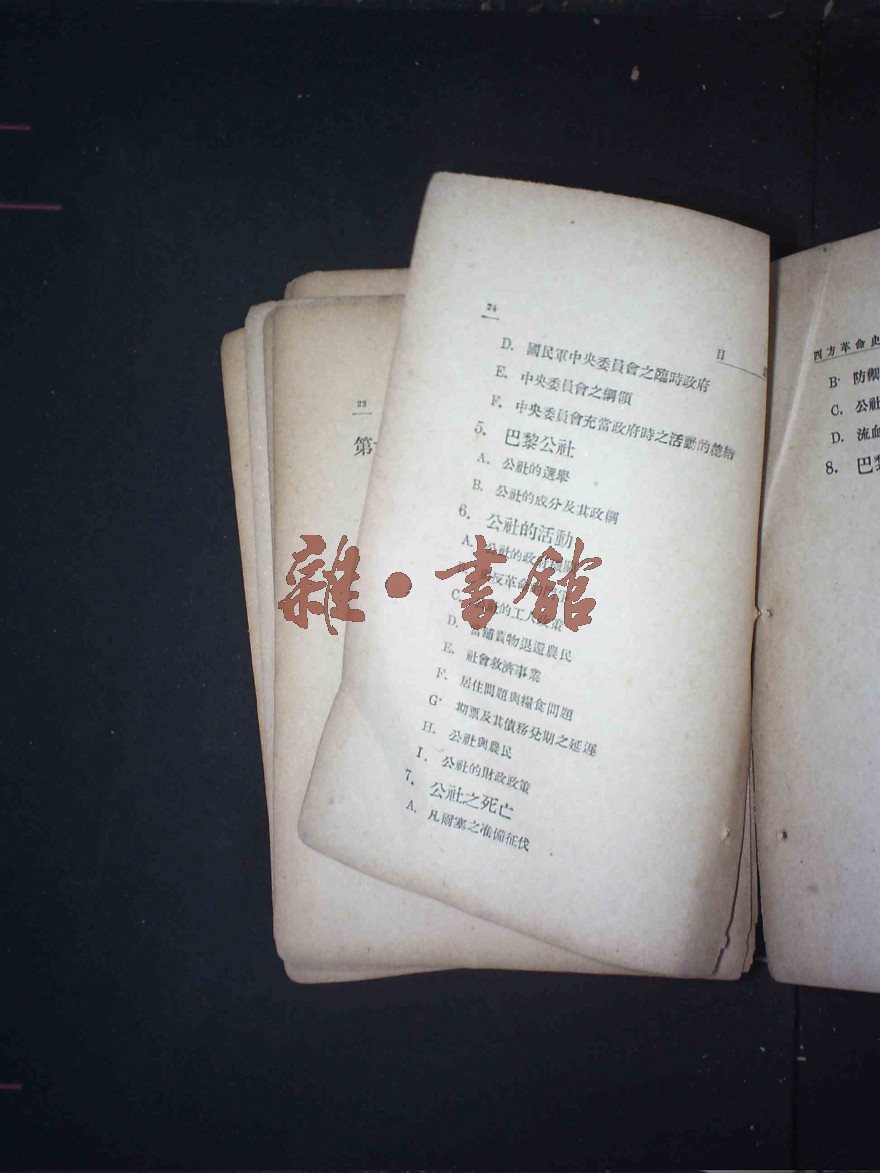 24
日
D. 國民軍中央委員會之臨時政府
E. 中央委員會之綱領
F. 中央委員會充當政府時之活動的總結
5. 巴黎公社
A. 公社的選舉
B. 公社的成分及其政綱
6. 公社的活動
A. 公社的政府機關
反革命
C. 公社的工人政策
D. 當舖賣物退還農民
E. 社會救濟事業
F. 居住問題與糧食問題
G. 期票及其債務兌期之延遲
H. 公社與農民
I. 公社的財政政策
7. 公社之死亡
A. 凡爾塞之准備征伐
22
第
西方革命史
B. 防禦
C. 公社
D. 流血
8. 巴黎
雜·書館